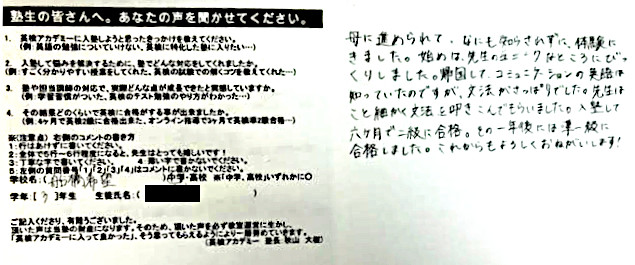 塾生の皆さんへ。あなたの声を聞かせてください。
1. 英検アカデミーに入塾しようと思ったきっかけを教えてください。
(例: 英語の勉強についていけない、英検に特化した塾に入りたい…)
2. 入塾して悩みを解決するために、塾でどんな対応をしてくれましたか。
(例: すごく分かりやすい授業をしてくれた、英検の試験での解くコツを教えてくれた…)
3. 塾や担当講師の対応で、実際どんな点が成長できたと実感していますか。
(例: 学習習慣がついた、英検のテスト勉強のやり方がわかった…)
4. その結果どのくらいで英検に合格する事が出来ましたか。
(例: 4ヶ月で英検2級に合格出来た、オンライン指導で3ヶ月で英検準2級合格…)
※(注意点) 右側のコメントの書き方
1: 行はあけずに書いてください。
2: 全体でも5行~6行程度になると、先生はとっても嬉しいです!
3: 丁寧な字で書いてください。 4 薄い字で書かないでください。
5: 左側の質問番号「1」「2」「3」「4」はコメントに書かないでください。
学校名: ( 船橋希望 )中学・高校 ※「中学、高校」いずれかに○
学年: ( 3 )年生 生徒氏名: ( )
ご記入くださり、有難うございました。
頂いた声は当塾の財産になります。そのため、頂いた声を必ず教室運営に生かし、
「英検アカデミーに入って良かった」、そう思ってもらえるようにより一層努めていきます。
(英検アカデミー 塾長 秋山 大樹)
母に進められて、なにも知らされずに、体験に
きました。始めは、先生のユニークなところにびっ
くりしました。帰国して、コミュニケーションの英語は
知っていたのですが、文法がさっぱりでした。先生は
こと細かく文法を叩きこんでもらいました。入塾して
六ケ月で二級に合格。その一年後には準一級に
合格しました。これからもよろしくおねがいします!